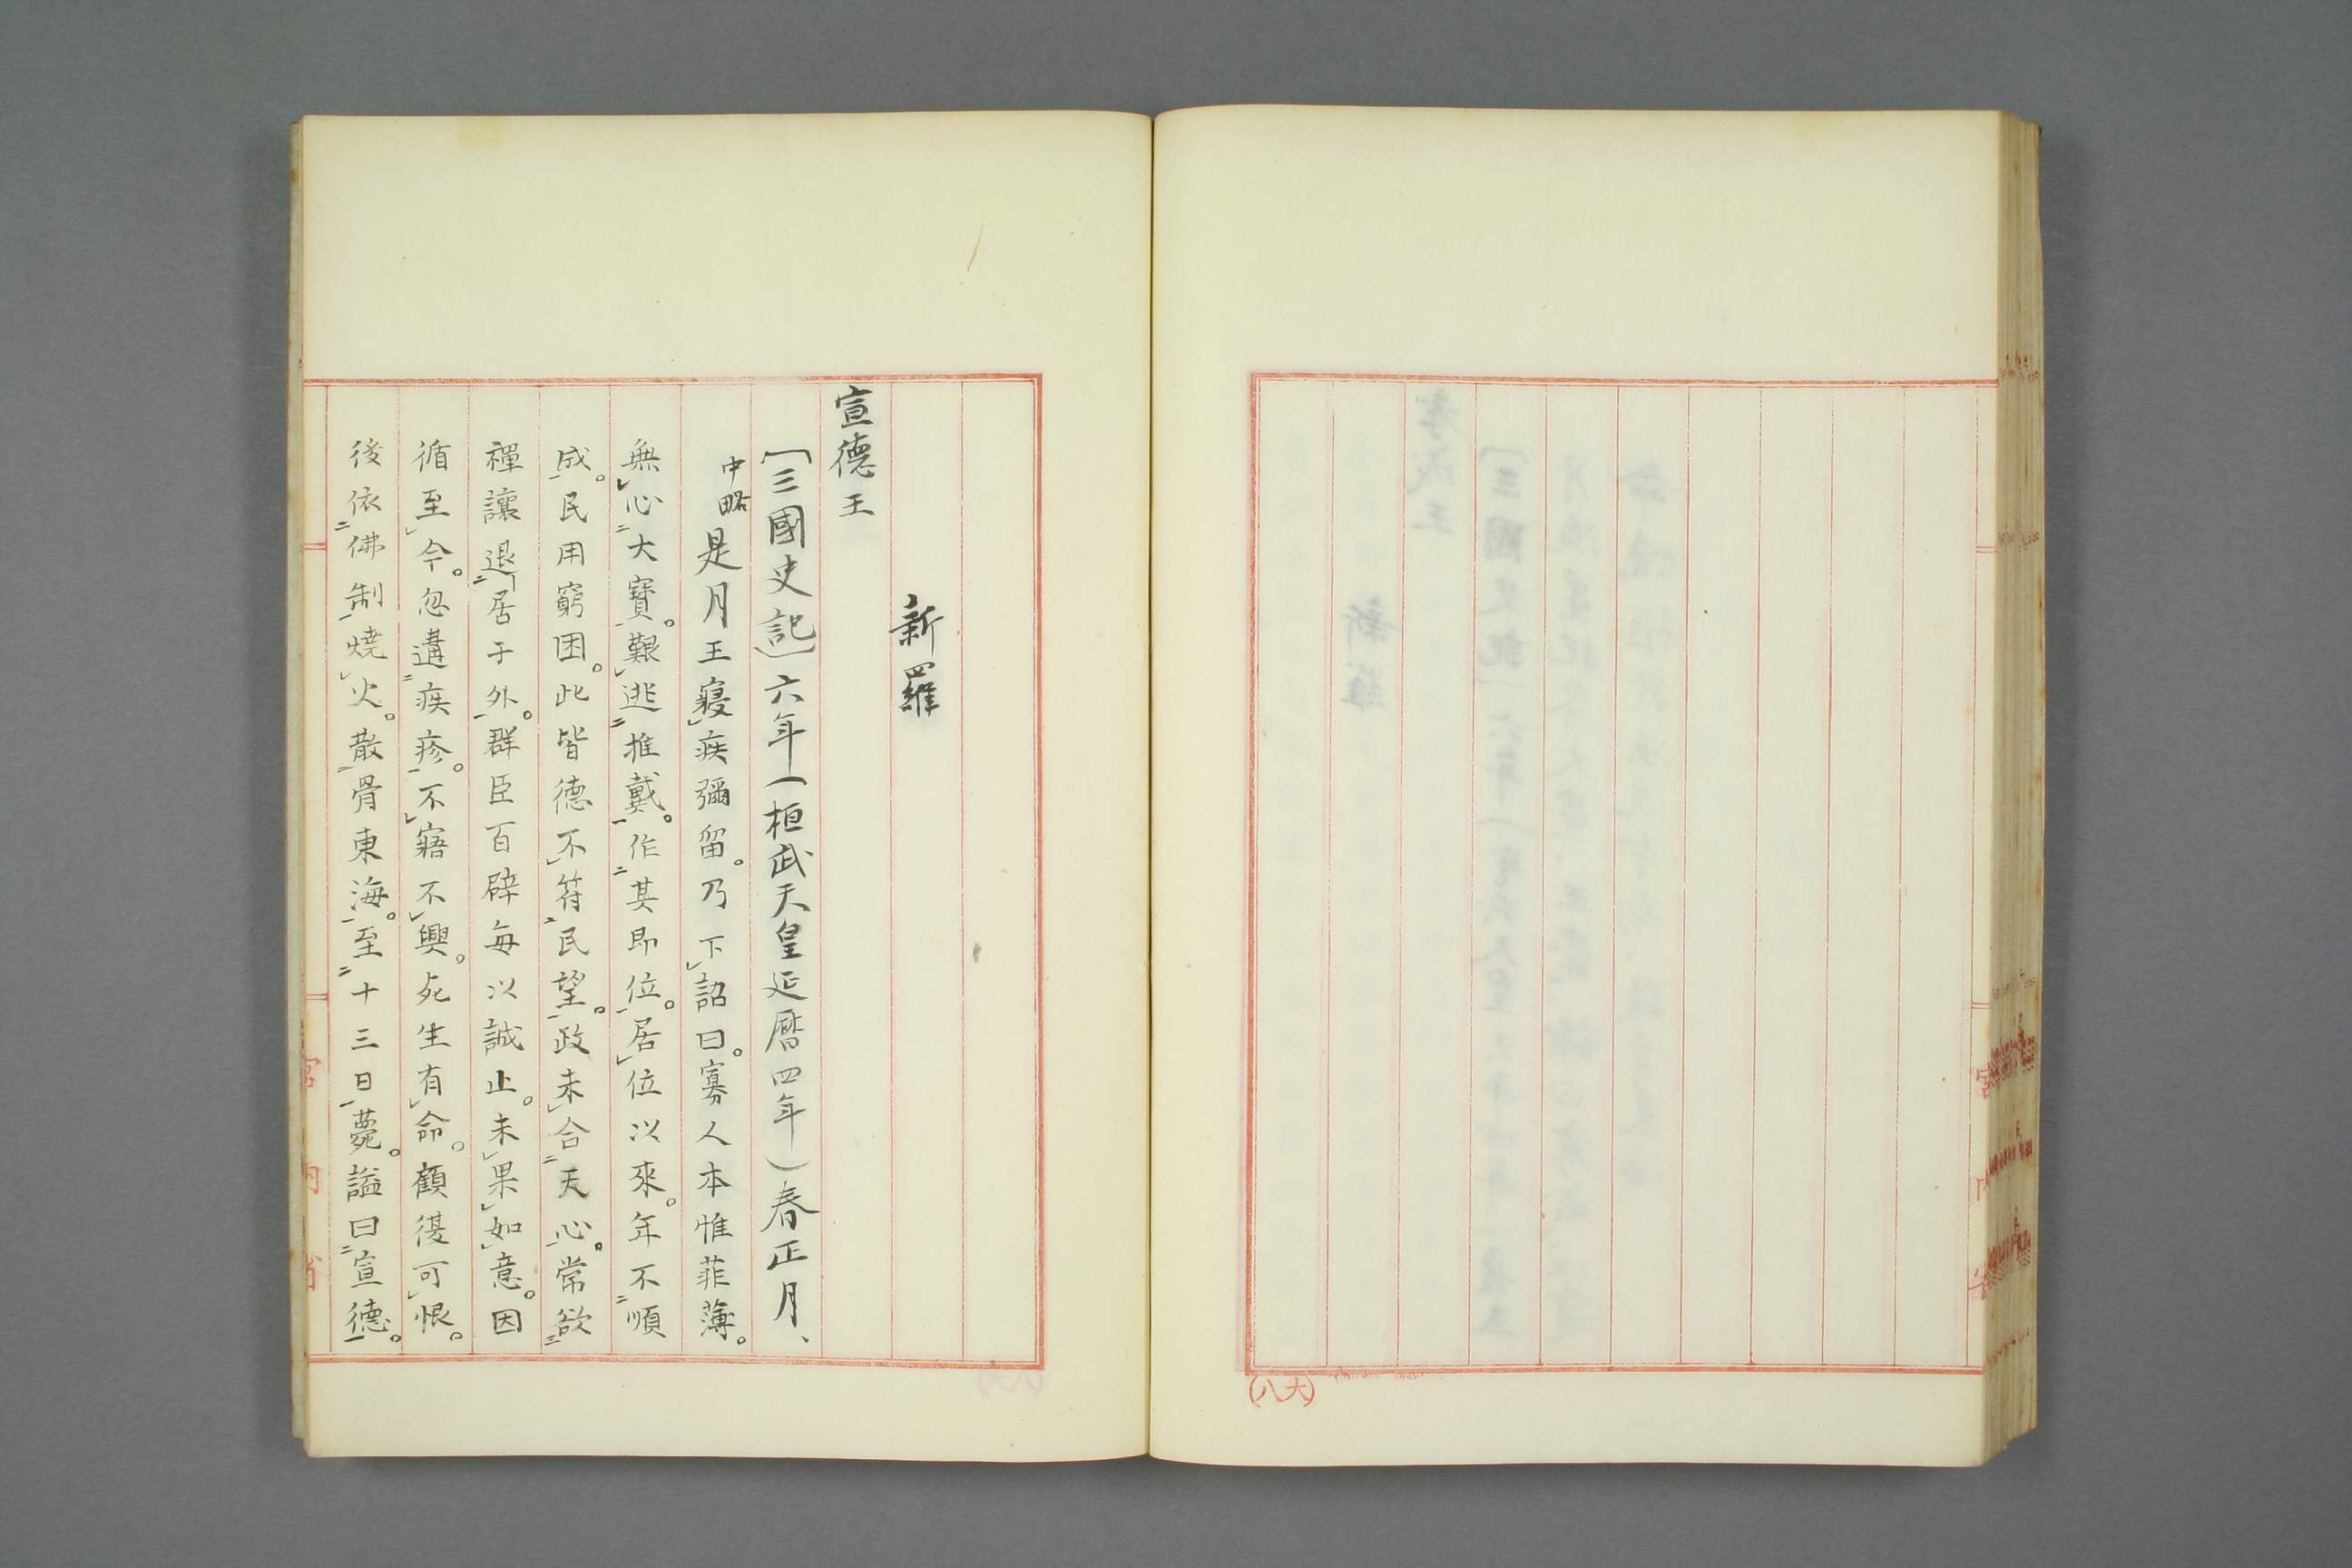 (八大)
新羅
宣德王
〔三國史記〕六年(桓武天皇延曆四年)春正月、
中略是月王寢疾彌留。乃下詔曰。寡人本惟菲薄。
無心大寶。難逃推戴。作其即位。居位以來。年不順
成。民用窮困。此皆德不符民望。政未合天心。常欲
禪讓退居于外。群臣百辟每以誠止。未果如意。因
循至今。忽遘疾疹。不寤不興。死生有命。顧復可恨。
後依佛制燒火。散骨東海。至十三日薨。諡曰宣德。